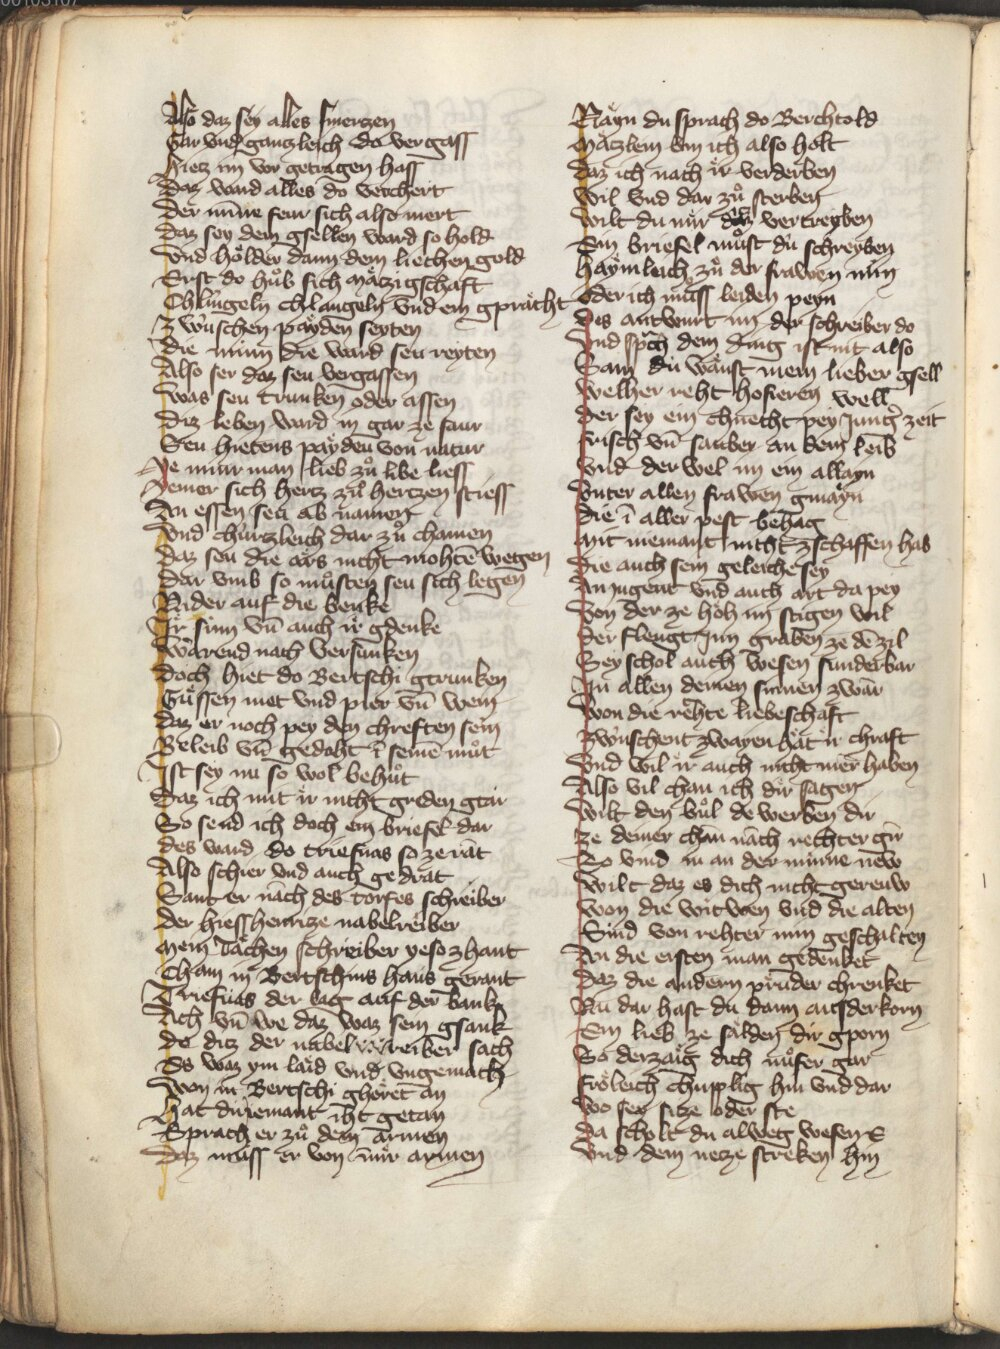 00103107
Also daz sey alles smerczen
Gar vnd ganczleich do vergass
Hietz im vor getragen hass
Daz ward alles do verchert
Der minne feur sich also mert
Daz sey dem gsellen ward so hold
Vnd holder dann dem liechen gold
Erst do hůb sich mätzigschaft
Chlüngeln chlangeln vnd ein gprächt
Zwüschen päyden seyten
Die minn die ward seu reyten
Also ser daz seu vergassen
Was seu trunken oder assen
Diz leben ward in gar ze saur
Seu hietens päyden von natur
Ye mur man lieb zů libe liess
Yemer sich hertz zů hertzen stiess
An essen seu ab namen
Vnd chürzleich dar zů chamen
Daz seu die ärs nicht mohten wegen
Dar vmb so můsten seu sich legen
Nider auf die benke
Ir sinn vn̄ auch ir gdenke
Warend nach versunken
Doch hiet do Bertschi getrunken
Süssen met vnd pier vn̄ wein
Daz er noch pey den chreften sein
Beleib vn̄ gedaht ī seinē můt
Ist sey nu so wol behůt
Daz ich mit ir nicht greden gtar
So send ich doch ein briefel dar
Des ward do triefnas so ze rat
Also schier vnd auch gedrat
Sant er nach des torfes schreiber
Der hiess henrize nabelreiber
Mein lachen schreiber yeso zhant
Cham in Bertschins haus gerant
Triefnas der lag auf der bank
Ach vn̄ we daz waz sein gsank
Do diz der nabel reiber sach
Es waz ym laid vnd vngemach
Won in Bertschi ghöret an
Hat dir iemant iht getan
Sprach er zů dem armen
Daz muss er von mir arnen
Nayn du sprach do Berchtold
Mäczlein bin ich also holt
Daz ich nach ir verderben
Wil vnd dar zů sterben
Wilt du mir daz vertreyben
Ein briefel můst du schreyben
Haymleich zů der frawen min
Oder ich muss leiden peyn
Des antwurt im der schreiber do
Vnd sprach dem ding ist nit also
Sam du wänst mein lieber gsell
Welher reht hofieren well
Der sey ein chnecht pey jung̉ zeit
Frisch vn̄ sauber an dem leib
Vnd der wel im ein allayn
Vnter allen frawen gmayn
Die ī aller pest behag
Mit niemant nicht zschaffen hab
Die auch sein geleiche sey
An jugent vnd auch art da pey
Von der ze hoh im stigen wil
Der fleugt inn graben ze dē zil
Sey schol auch wesen sunderbar
In allen deinen sinnen zwar
Won die rehte liebeschaft
Zwüschent zwayen hat ir chraft
Vnd wil ir auch nicht mer haben
Also vil chan ich dir sagen
Wilt den bůl de werben dir
Ze deiner chan nach rechter gir
So vind in an der minne new
Wilt daz es dich nicht gerenw
Won die witwen vnd die alten
Sind von rehter min geschalten
An die ersten man gedenket
Daz die andern prüder chrenket
Nu dar hast du dann ausderkorn
Ein lieb ze sälden dir gporn
So derzaig dich nüfer gar
Fröleich chupplig hin vnd dar
Wo sey sitze oder ste
Da scholt du alweg wesen e
Vnd dem netze streken hin